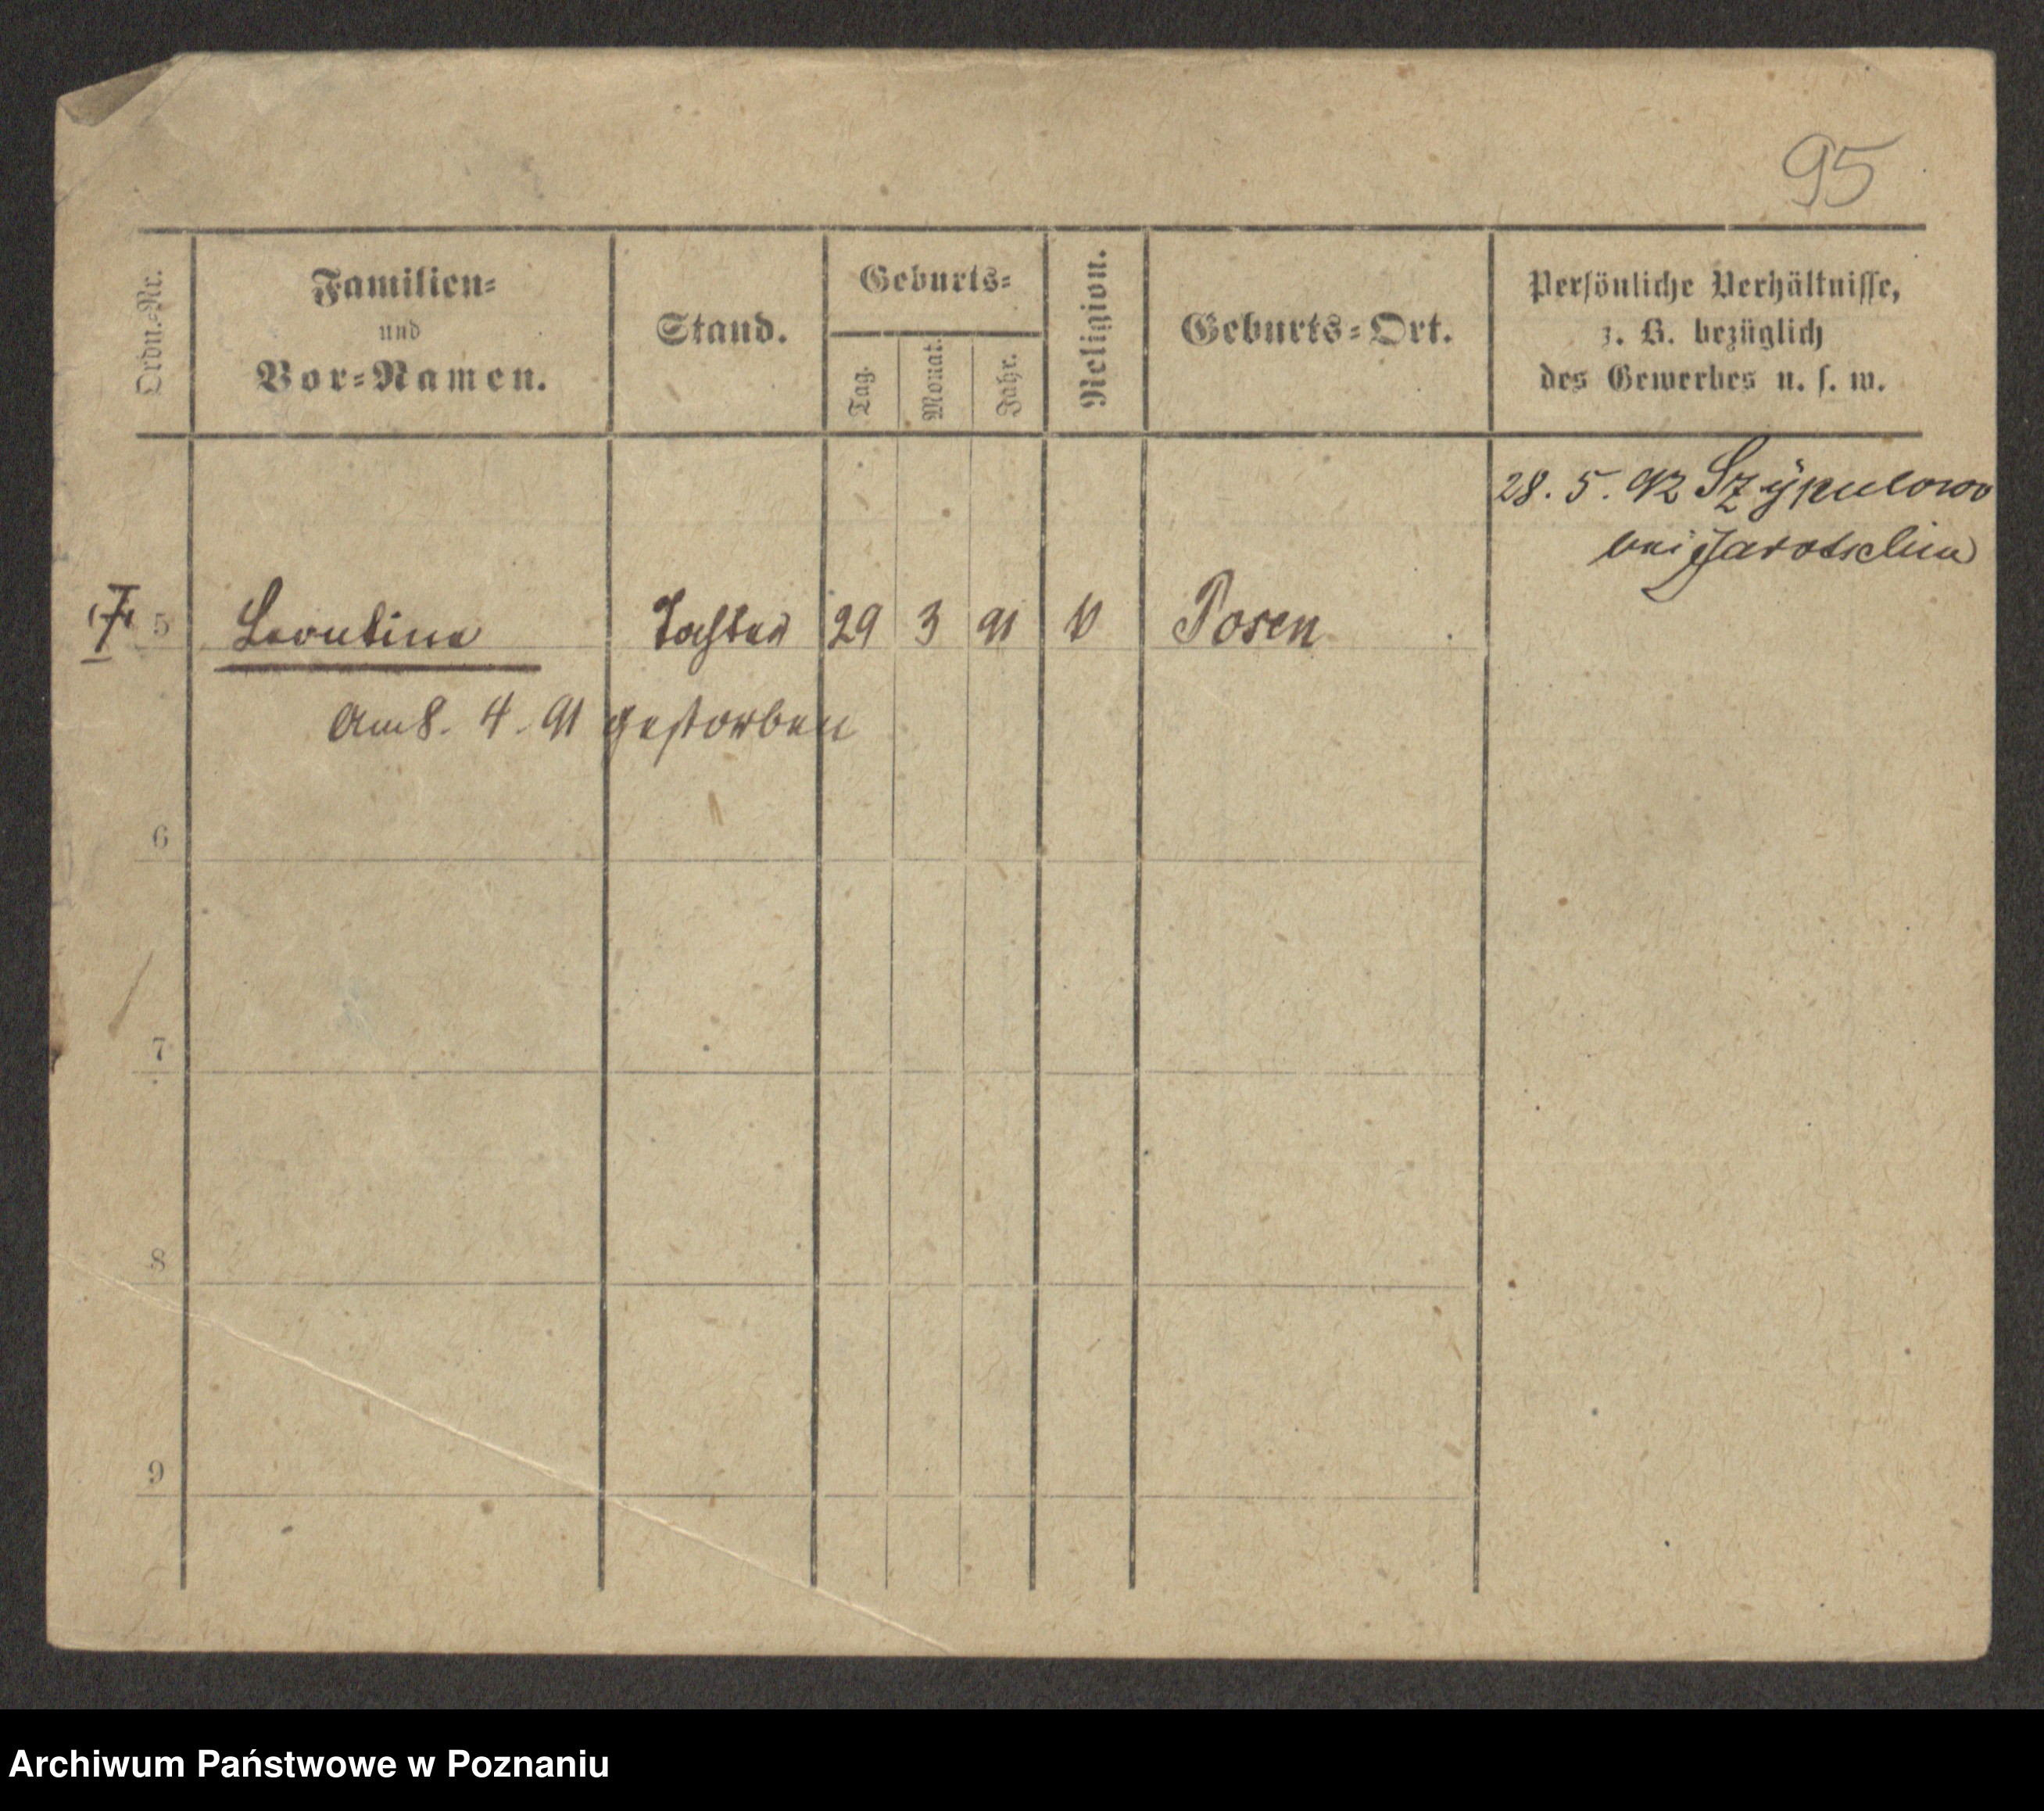 95
Ordn.-Nr.
Familien-
und
Vor-Namen.
Stand.
Geburts-
Tag.
Monat.
Jahr.
Religion.
Geburts-Ort.
Persönliche Verhältnisse,
z. B. bezüglich
des Gewerbes u. s. w.
28. 5. 92 Szÿpulowo
bei Jarotschin
† 5 Leontine Tochter 29 3 91 Posen
am 8. 4. 91 gestorben
6
7
8
9
Archiwum Państwowe w Poznaniu